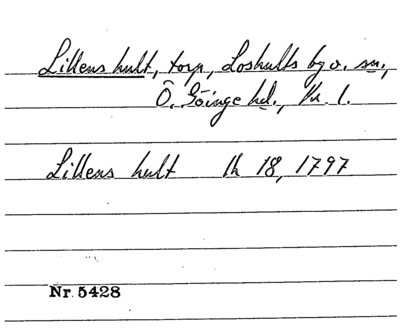 Lillens hult, torp, Loshults by o. sn.,
Ö. Göinge hd., Kr. l.
Lillens hult lk 18, 1797
Nr. 5428